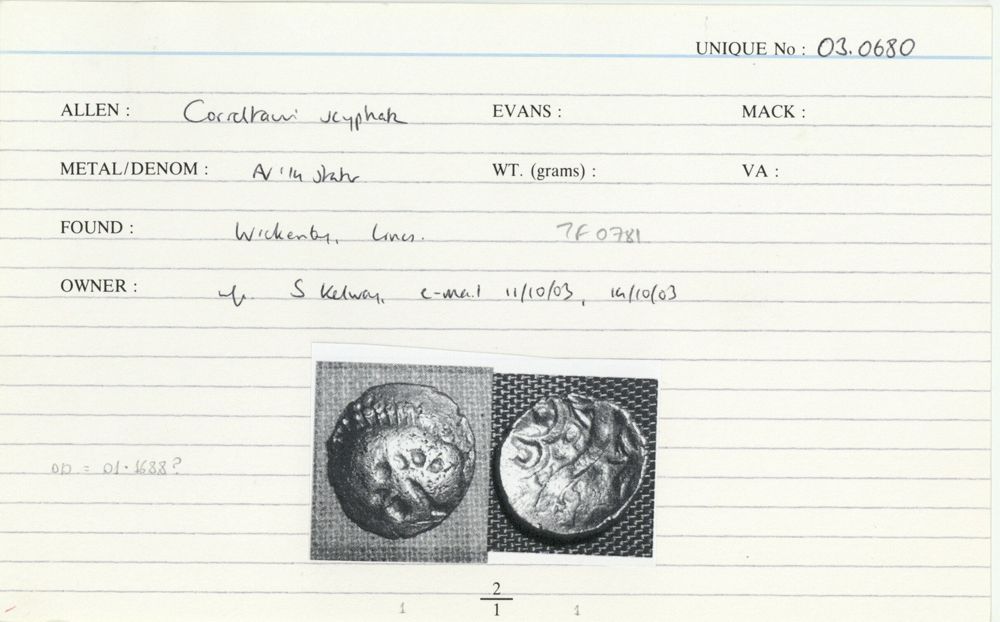 UNIQUE No : 03.0680
ALLEN : Corieltauvi scyphate EVANS : MACK :
METAL/DENOM : stater WT. (grams) : VA :
FOUND : Wickenby, Lincs. TF 0781
OWNER : S Kelway, e-mail 11/10/03, 14/10/03
OD = 01.1688?
2
1 1 1